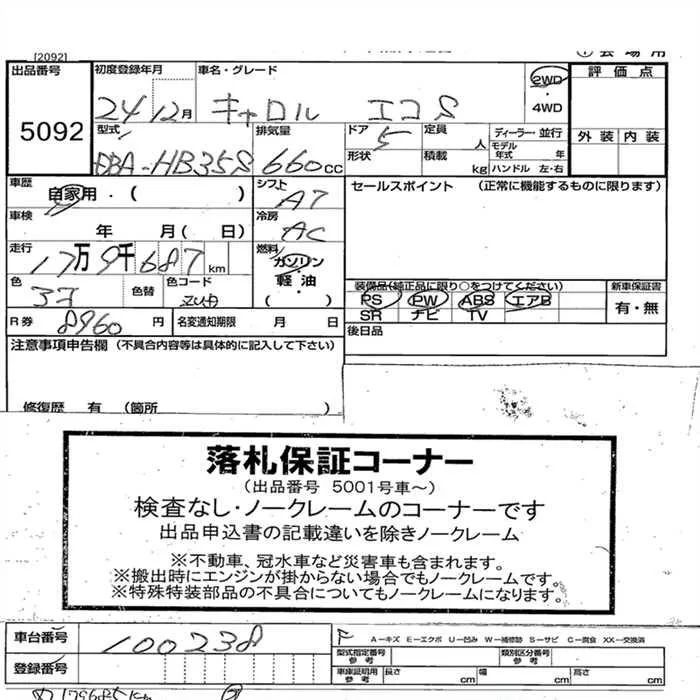 [2092]
① 会場用
出品番号 初度登録年月 車名・グレード 2WD 評価点
5092 24 12月 キャロル エコS ・ 4WD 外装 内装
型式 排気量 ドア 定員 ディーラー・並行
DBA-HB35S 660cc 5 人 モデル年式 年
形状 積載 kg ハンドル 左・右
車歴 自家用・( ) シフト A7 セールスポイント (正常に機能するものに限ります)
車検 年 月( 日) 冷房 AC
走行 17万9千687km 燃料 ガソリン
軽・油
( )
色 色替 色コード ZUB
装備品(純正品に限り○をつけてください) 新車保証書
PS PW ABS エアB 有・無
SR ナビ TV
R券 8960円 名変通知期限 月 日 後日品
注意事項申告欄 (不具合内容等は具体的に記入して下さい)
修復歴 有 (箇所 )
落札保証コーナー
(出品番号 5001号車～)
検査なし・ノークレームのコーナーです
出品申込書の記載違いを除きノークレーム
※不動車、冠水車など災害車も含まれます。
※搬出時にエンジンが掛からない場合でもノークレームです。
※特殊特装部品の不具合についてもノークレームになります。
車台番号 100238 F A－キズ E－エクボ U－凹み W－補修跡 S－サビ C－腐食 XX－交換済
型式指定番号 参考 類別区分番号 参考
登録番号 車庫証明用 参考 長さ cm 幅 cm 高さ cm